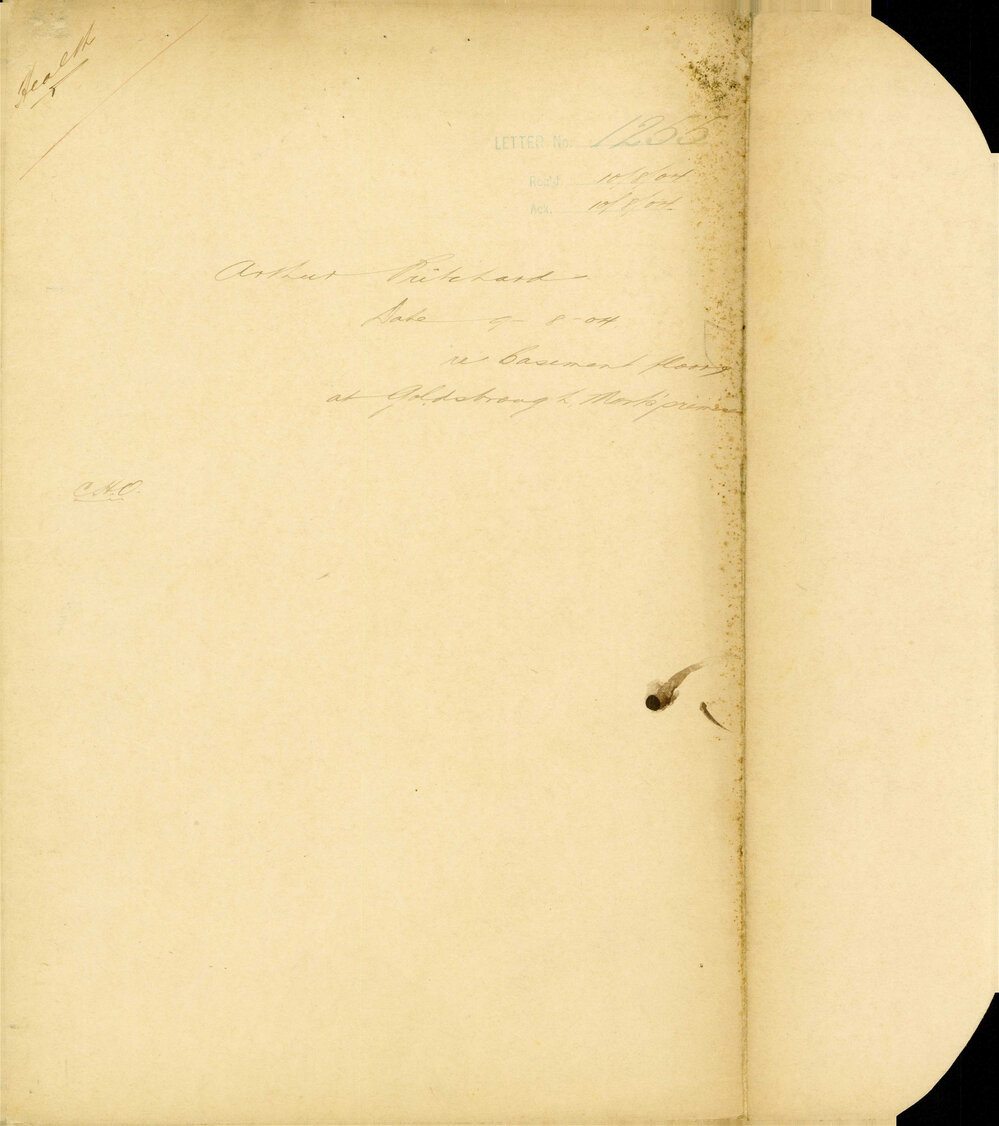 Health
LETTER No. 1255
Rec'd. 10/8/04
Ack. 10/8/04
Arthur Pritchard
Date 9-8-04
re Basement floors
at Goldsbrough Mort's
C.H.O.